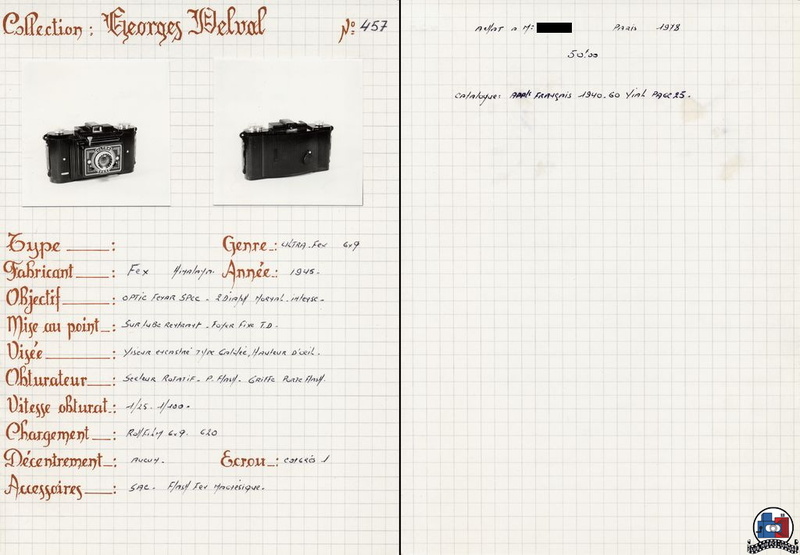 Collection : Georges Delval N° 457
Type : Genre : ULTRA.Fex 6x9
Fabricant : Fex Année : 1945.
Objectif : OPTIC FEXAR SPEC - 2 Diaph Normal. intense -
Mise au point : Sur tube Rentrant - Foyer Fixe T.D -
Visée : Viseur encastré Type Galilée, Hauteur D'oeil.
Obturateur : Secteur Rotatif - P. Flash - Griffe Porte Flash.
Vitesse obturat. : 1/25. 1/100.
Chargement : Rollfilm 6x9. 620
Décentrement : Aucun. Ecrou : Congrès 1
Accessoires : SAC. Flash Fex Magnésique.
Achat a Mr Paris 1978
50f00
Catalogue: FRANÇAIS 1940-60 Vial PAGE 25.